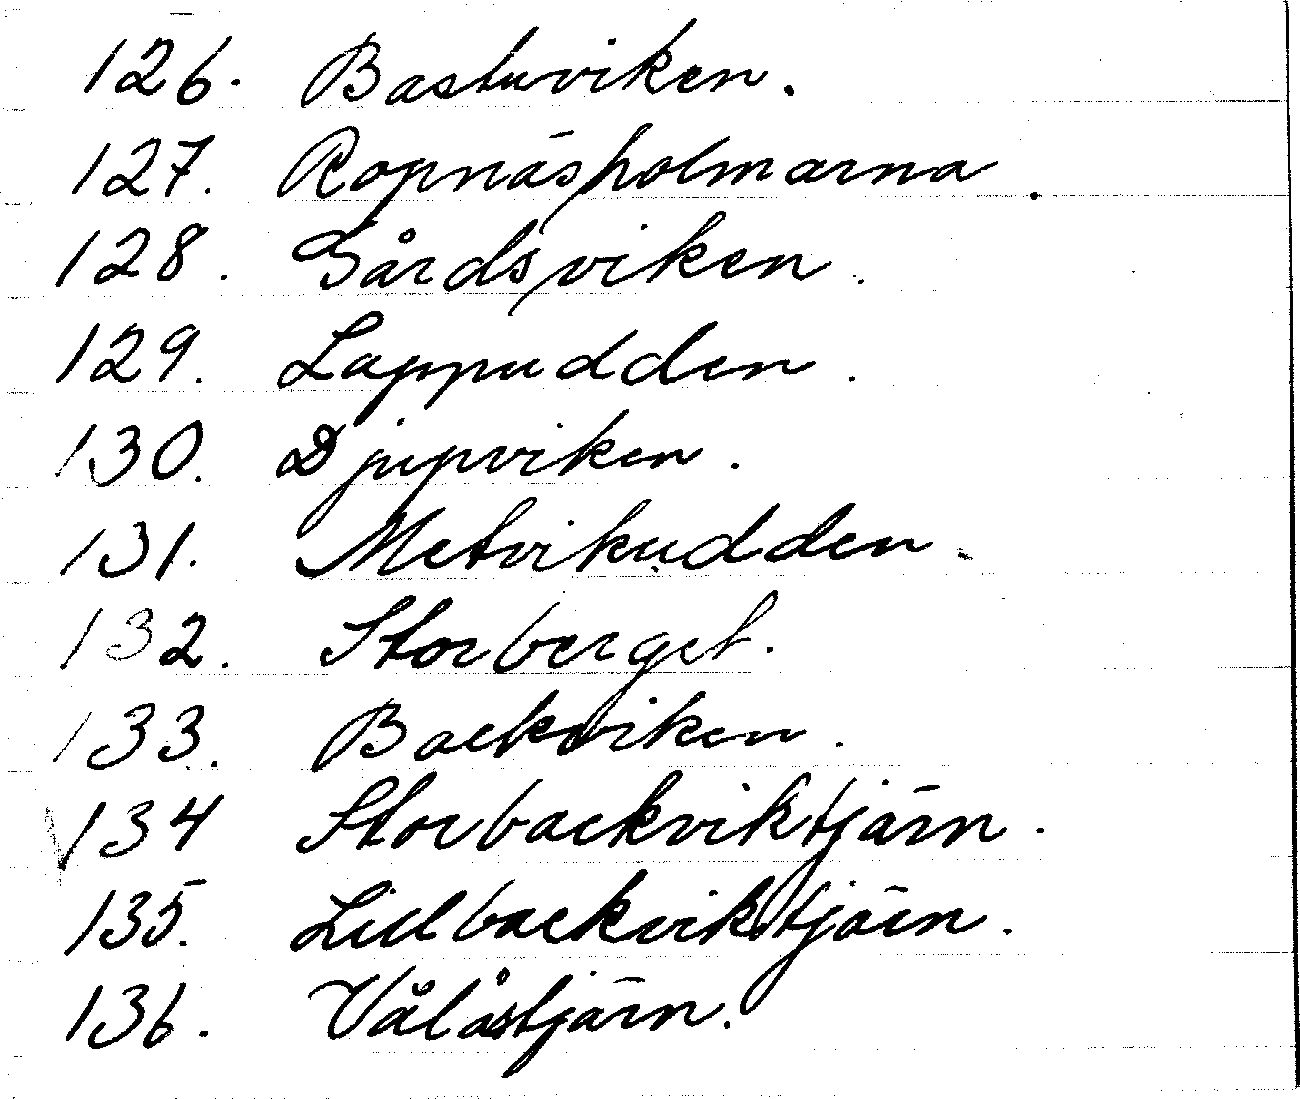 126. Bastuviken.
127. Ropnäsholmarna.
128. Gårdsviken.
129. Lappudden.
130. Djupviken.
131. Metvikudden.
132. Storberget.
133. Backviken.
134 Storbackviktjärn.
135. Lillbackviktjärn.
136. Vålåstjärn.